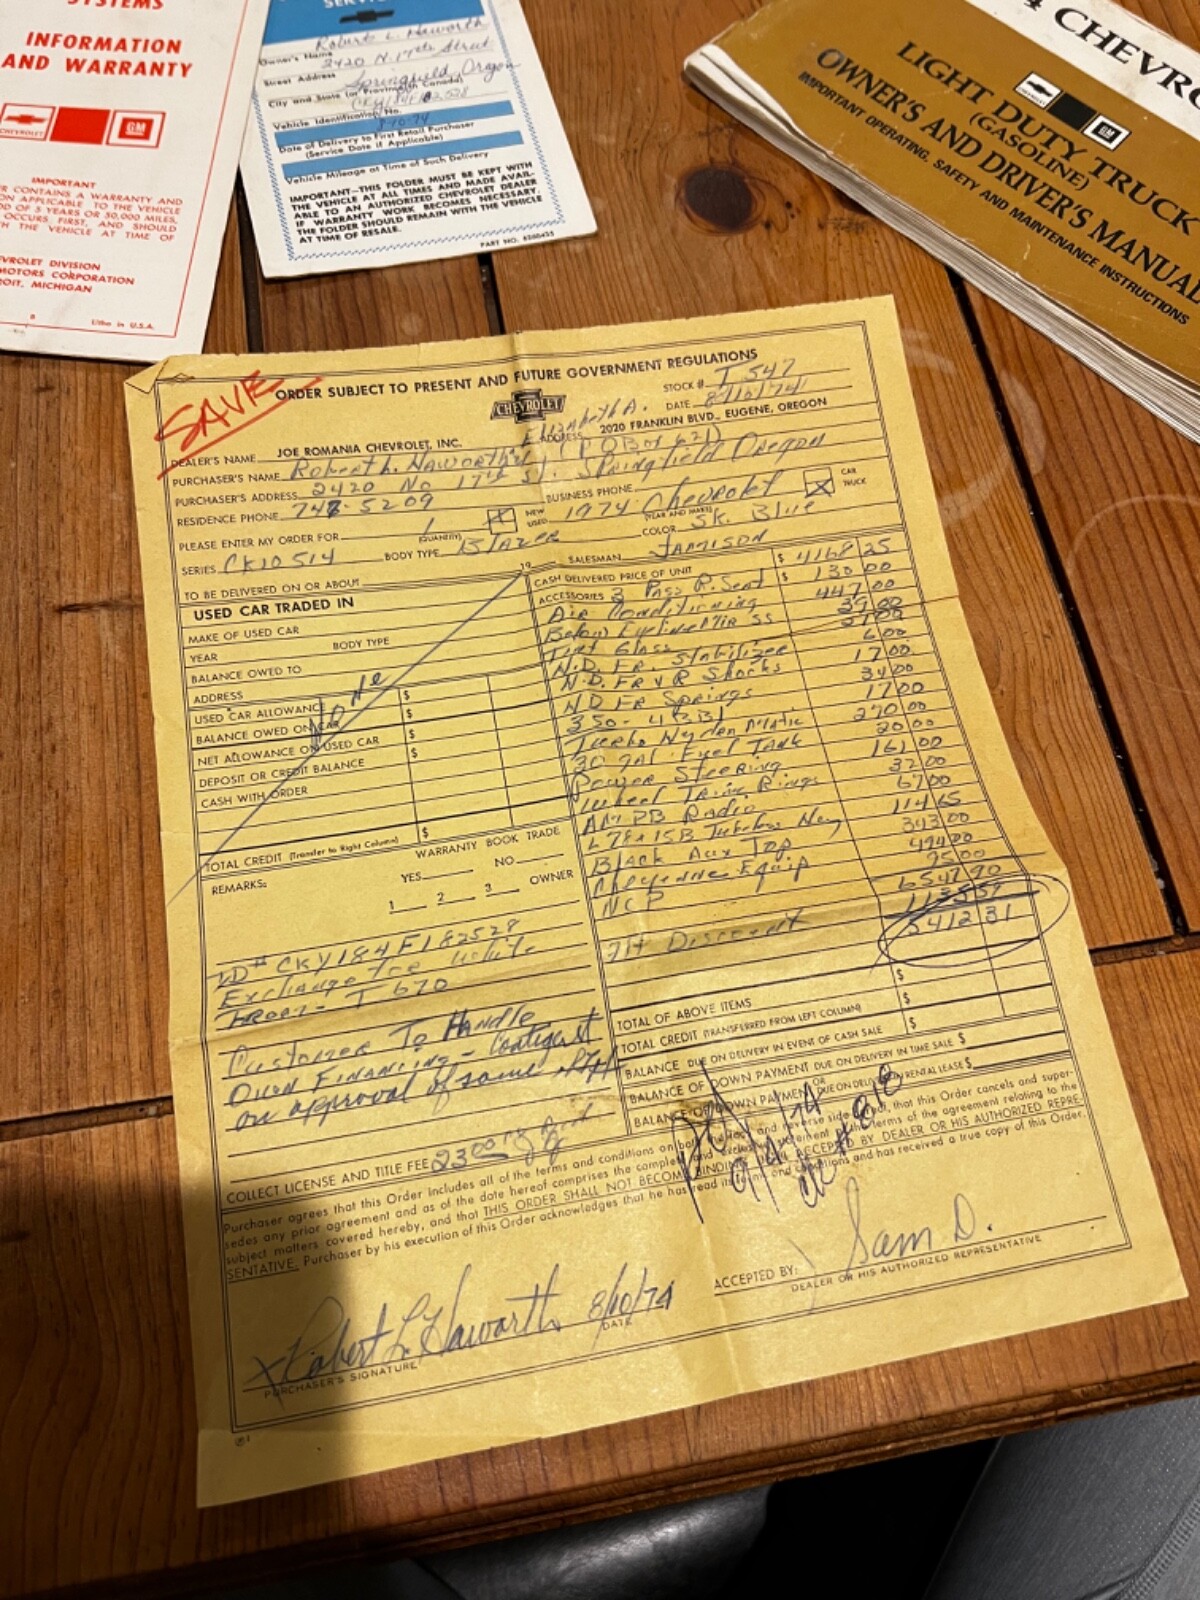 SYSTEMS
INFORMATION
AND WARRANTY
CHEVROLET GM
IMPORTANT
CONTAINS A WARRANTY AND
ON APPLICABLE TO THE VEHICLE
OD OF 5 YEARS OR 50,000 MILES,
OCCURS FIRST, AND SHOULD
H THE VEHICLE AT TIME OF
CHEVROLET DIVISION
MOTORS CORPORATION
ROIT, MICHIGAN
Litho in U.S.A.
SERVICE
Robert L. Haworth
Owner's Name
2420 N. 17th Street
Street Address
Springfield, Oregon
City and State (or Province in Canada)
Vehicle Identification No.
Date of Delivery to First Retail Purchaser
(Service Date if Applicable)
Vehicle Mileage at Time of Such Delivery
IMPORTANT—THIS FOLDER MUST BE KEPT WITH
THE VEHICLE AT ALL TIMES AND MADE AVAIL-
ABLE TO AN AUTHORIZED CHEVROLET DEALER
IF WARRANTY WORK BECOMES NECESSARY.
THE FOLDER SHOULD REMAIN WITH THE VEHICLE
AT TIME OF RESALE.
PART NO. 6260435
4 CHEVRO
LIGHT DUTY TRUCK
(GASOLINE)
CHEVROLET GM
OWNER'S AND DRIVER'S MANUAL
IMPORTANT OPERATING, SAFETY AND MAINTENANCE INSTRUCTIONS
SAVE
ORDER SUBJECT TO PRESENT AND FUTURE GOVERNMENT REGULATIONS
CHEVROLET
STOCK # T 547
DATE 8/10/74
DEALER'S NAME JOE ROMANIA CHEVROLET, INC. ADDRESS 2020 FRANKLIN BLVD., EUGENE, OREGON
Elizabeth A.
PURCHASER'S NAME Robert L. Haworth (P O Box 621)
PURCHASER'S ADDRESS 2420 No 17th St. Springfield Oregon
RESIDENCE PHONE 747-5209 BUSINESS PHONE
PLEASE ENTER MY ORDER FOR 1 (QUANTITY) X NEW USED 1974 Chevrolet (YEAR AND MAKE) X CAR TRUCK
SERIES CK10514 BODY TYPE Blazer COLOR Sk. Blue
TO BE DELIVERED ON OR ABOUT 19 SALESMAN Jamison
USED CAR TRADED IN
MAKE OF USED CAR
YEAR BODY TYPE
BALANCE OWED TO
ADDRESS
USED CAR ALLOWANCE $
BALANCE OWED ON CAR $
NET ALLOWANCE ON USED CAR $
DEPOSIT OR CREDIT BALANCE $
CASH WITH ORDER
None
TOTAL CREDIT (Transfer to Right Column) $
REMARKS: WARRANTY BOOK TRADE
YES NO
1 2 3 OWNER
ID# CKY184F182528
Exchange for white
from - T 670
Customer To Handle
Own Financing - Contigent
on approval of same
COLLECT LICENSE AND TITLE FEE 23 00
CASH DELIVERED PRICE OF UNIT $ 4168 25
ACCESSORIES 3 Pass R. Seat $ 130 00
Air Conditioning 447 00
Below Eyeline Mir SS 39 00
Tint Glass 21 00
H.D. Fr. Stabilizer 6 00
H.D. Fr & R Shocks 17 00
HD FR Springs 34 00
350 - 4 BBl 17 00
Turbo Hydramatic 270 00
30 gal. Fuel Tank 20 00
Power Steering 161 00
Wheel Trim Rings 32 00
AM PB Radio 67 00
L78x15B Tubeless 114 65
Black Aux Top 343 00
Cheyenne Equip 494 00
NCP 95 00
6547 90
1135 59
Discount 5412 31
TOTAL OF ABOVE ITEMS $
TOTAL CREDIT (TRANSFERRED FROM LEFT COLUMN) $
BALANCE DUE ON DELIVERY IN EVENT OF CASH SALE $
BALANCE OF DOWN PAYMENT DUE ON DELIVERY IN TIME SALE $
BALANCE OF DOWN PAYMENT OR DUE ON DELIVERY IN RENTAL LEASE $
Pd
Purchaser agrees that this Order includes all of the terms and conditions on both the face and reverse side hereof, that this Order cancels and super-
sedes any prior agreement and as of the date hereof comprises the complete and exclusive statement of the terms of the agreement relating to the
subject matters covered hereby, and that THIS ORDER SHALL NOT BECOME BINDING UNTIL ACCEPTED BY DEALER OR HIS AUTHORIZED REPRE-
SENTATIVE. Purchaser by his execution of this Order acknowledges that he has read its terms and conditions and has received a true copy of this Order.
ACCEPTED BY: Sam D.
DEALER OR HIS AUTHORIZED REPRESENTATIVE
X Robert L. Haworth 8/10/74
PURCHASER'S SIGNATURE DATE